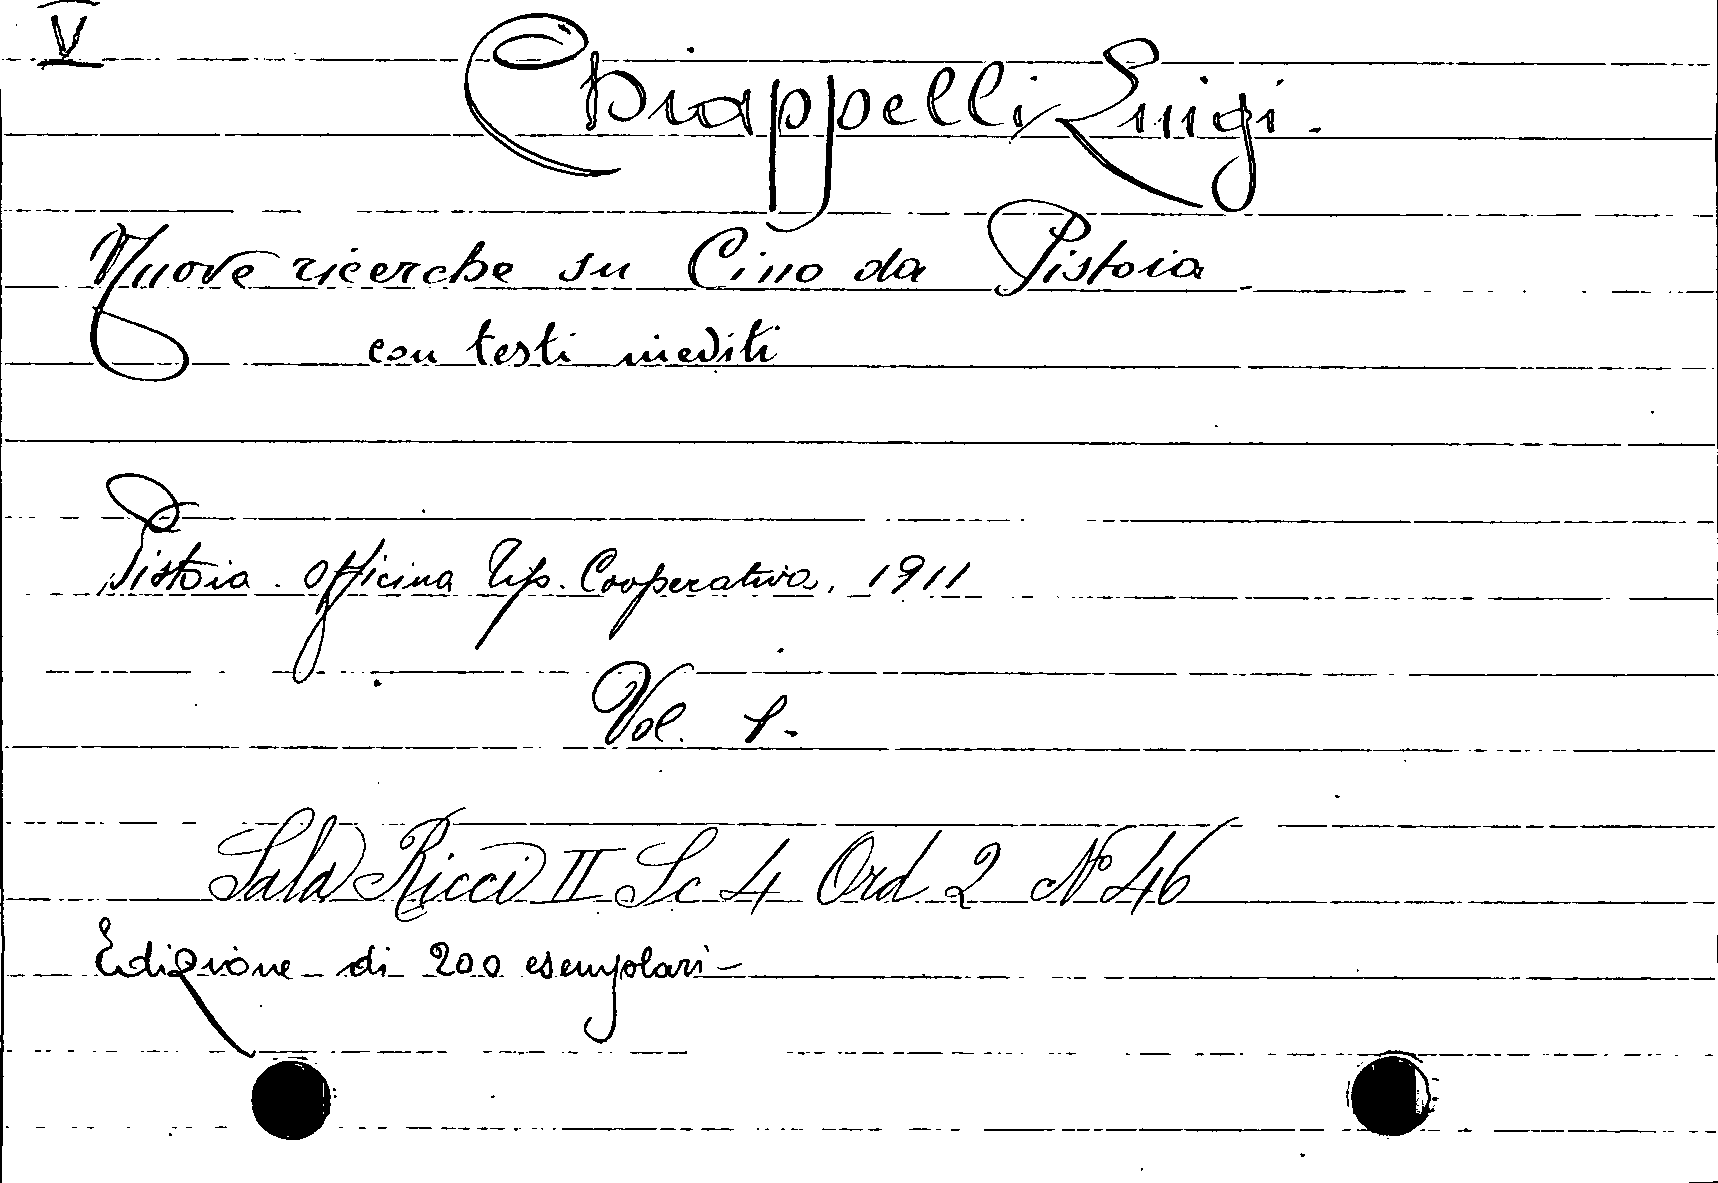 V
Chiappelli Luigi.
Nuove ricerche su Cino da Pistoia
con testi inediti
Pistoia. Officina Tip. Cooperativa, 1911
Vol. 1.
Sala Ricci II Sc 4 Ord 2 No 46
Edizione di 200 esemplari-